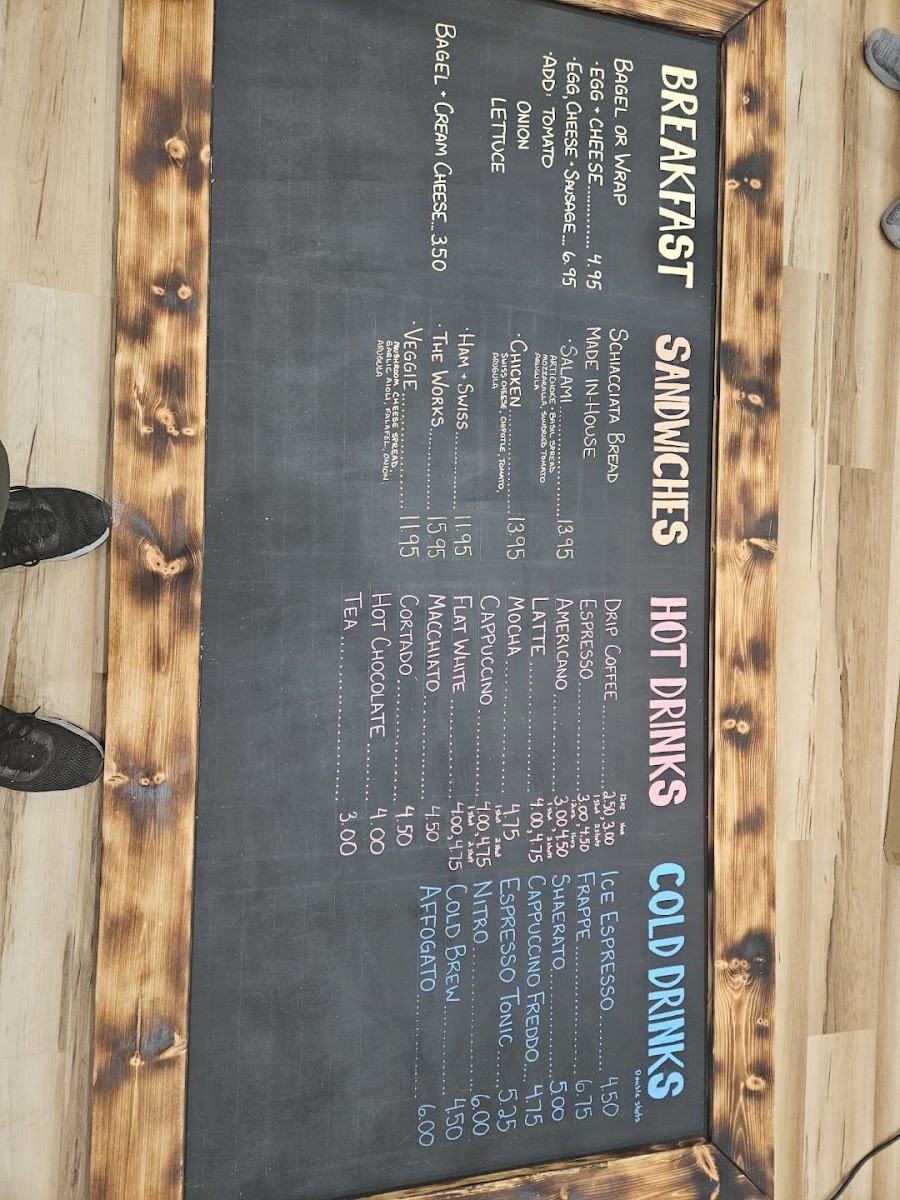 BREAKFAST
BAGEL OR WRAP
·EGG + CHEESE........... 4.95
·EGG, CHEESE + SAUSAGE... 6.95
·ADD: TOMATO
ONION
LETTUCE
BAGEL + CREAM CHEESE... 3.50
SANDWICHES
SCHIACCIATA BREAD
MADE IN-HOUSE
·SALAMI..................13.95
ARTICHOKE + BASIL SPREAD
MOZZARILLA, SUNDRIED TOMATO
ARUGULA
·CHICKEN................13.95
SWISS CHEESE, CHIPOTLE, TOMATO,
ARUGULA
·HAM + SWISS............11.95
·THE WORKS.............15.95
·VEGGIE...................11.95
MUSHROOM, CHEESE SPREAD,
GARLIC AIOLI, FALAFEL, ONION
ARUGULA
HOT DRINKS
DRIP COFFEE............2.50, 3.00
1 shot 2 shots
ESPRESSO...............3.00, 4.50
AMERICANO............3.00, 4.50
1 shot 2 shots
LATTE...................4.00, 4.75
MOCHA..................4.75
1 shot 2 shot
CAPPUCCINO..........4.00, 4.75
1 shot 2 shot
FLAT WHITE...........4.00, 4.75
MACCHIATO............4.50
CORTADO..............4.50
HOT CHOCOLATE......4.00
TEA.....................3.00
COLD DRINKS
Double shots
ICE ESPRESSO..........4.50
FRAPPE.................6.75
SHAERATO.............5.00
CAPPUCCINO FREDDO...4.75
ESPRESSO TONIC......5.25
NITRO..................6.00
COLD BREW...........4.50
AFFOGATO.............6.00